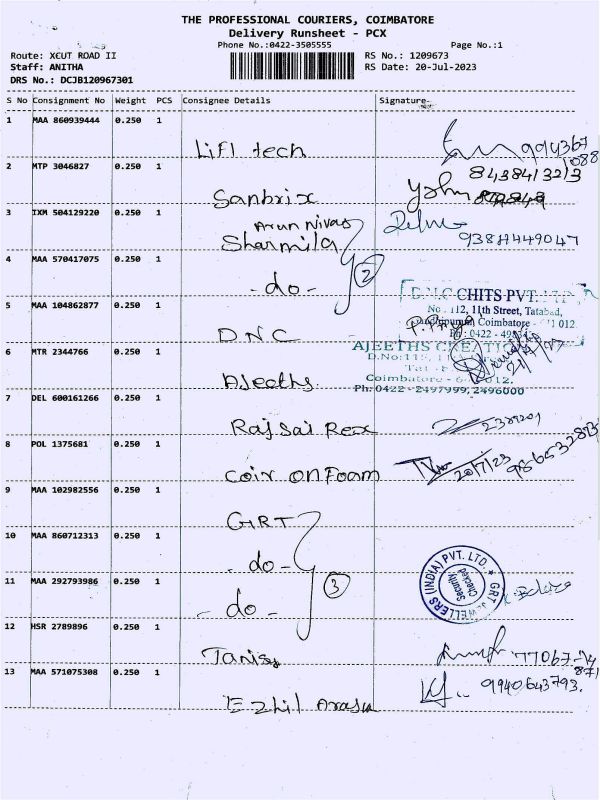 THE PROFESSIONAL COURIERS, COIMBATORE
Delivery Runsheet - PCX
Phone No.:0422-3505555
Page No.:1
Route: XCUT ROAD II
RS No.: 1209673
Staff: ANITHA
RS Date: 20-Jul-2023
DRS No.: DCJB120967301
S No Consignment No Weight PCS Consignee Details Signature
1 MAA 860939444 0.250 1
LiFI tech
2 MTP 3046827 0.250 1
84384 13213
Sanbrix
3 IXM 504129220 0.250 1
Arun Nivas
Sharmila
9384449047
4 MAA 570417075 0.250 1
- do - 2
D.N.C CHITS PVT. LTD
No. 112, 11th Street, Tatabad,
Coimbatore - 641 012.
5 MAA 104862877 0.250 1
DNC
AJEETHS CREATIONS
6 MTR 2344766 0.250 1
Ajeeths
Coimbatore - 641012.
Ph: 0422-2497999, 2496000
7 DEL 600161266 0.250 1
Raj Sai Rex
8 POL 1375681 0.250 1
20/7/23
Coir on Foam
9 MAA 102982556 0.250 1
GRT
10 MAA 860712313 0.250 1
- do -
11 MAA 292793986 0.250 1
3
- do -
GRT JEWELLERS (INDIA) PVT. LTD.
Security
Checked
12 HSR 2789896 0.250 1
Tanisq
13 MAA 571075308 0.250 1
9940643793.
Ezhil Arasu